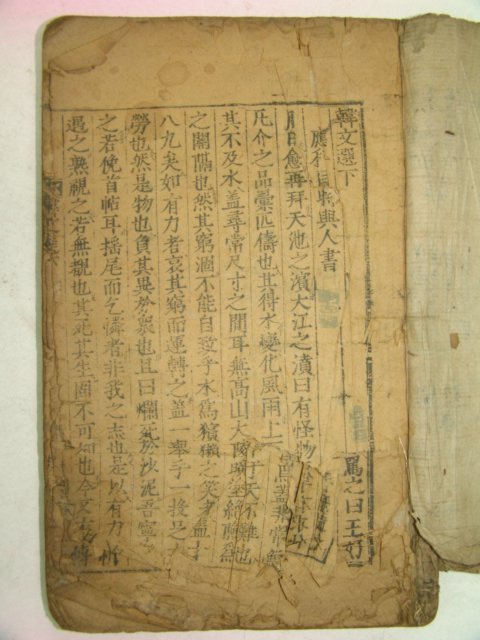 韓文選下
應科目時與人書
月日愈再拜天池之濱大江之濆曰有怪物
凡介之品彙匹儔也其得水變化風雨上于天不難也
其不及水蓋尋常尺寸之間耳無高山大陵曠塗絶險
之關隔也然其窮涸不能自致乎水爲獱獺之笑者蓋十
八九矣如有力者哀其窮而運轉之蓋一舉手一投足之
勞也然是物也負其異於衆也且曰爛死於沙泥吾寧
之若俛首帖耳搖尾而乞憐者非我之志也是以有力
遇之熟視之若無覩也其死其生固不可知也今又有
罵之曰王好